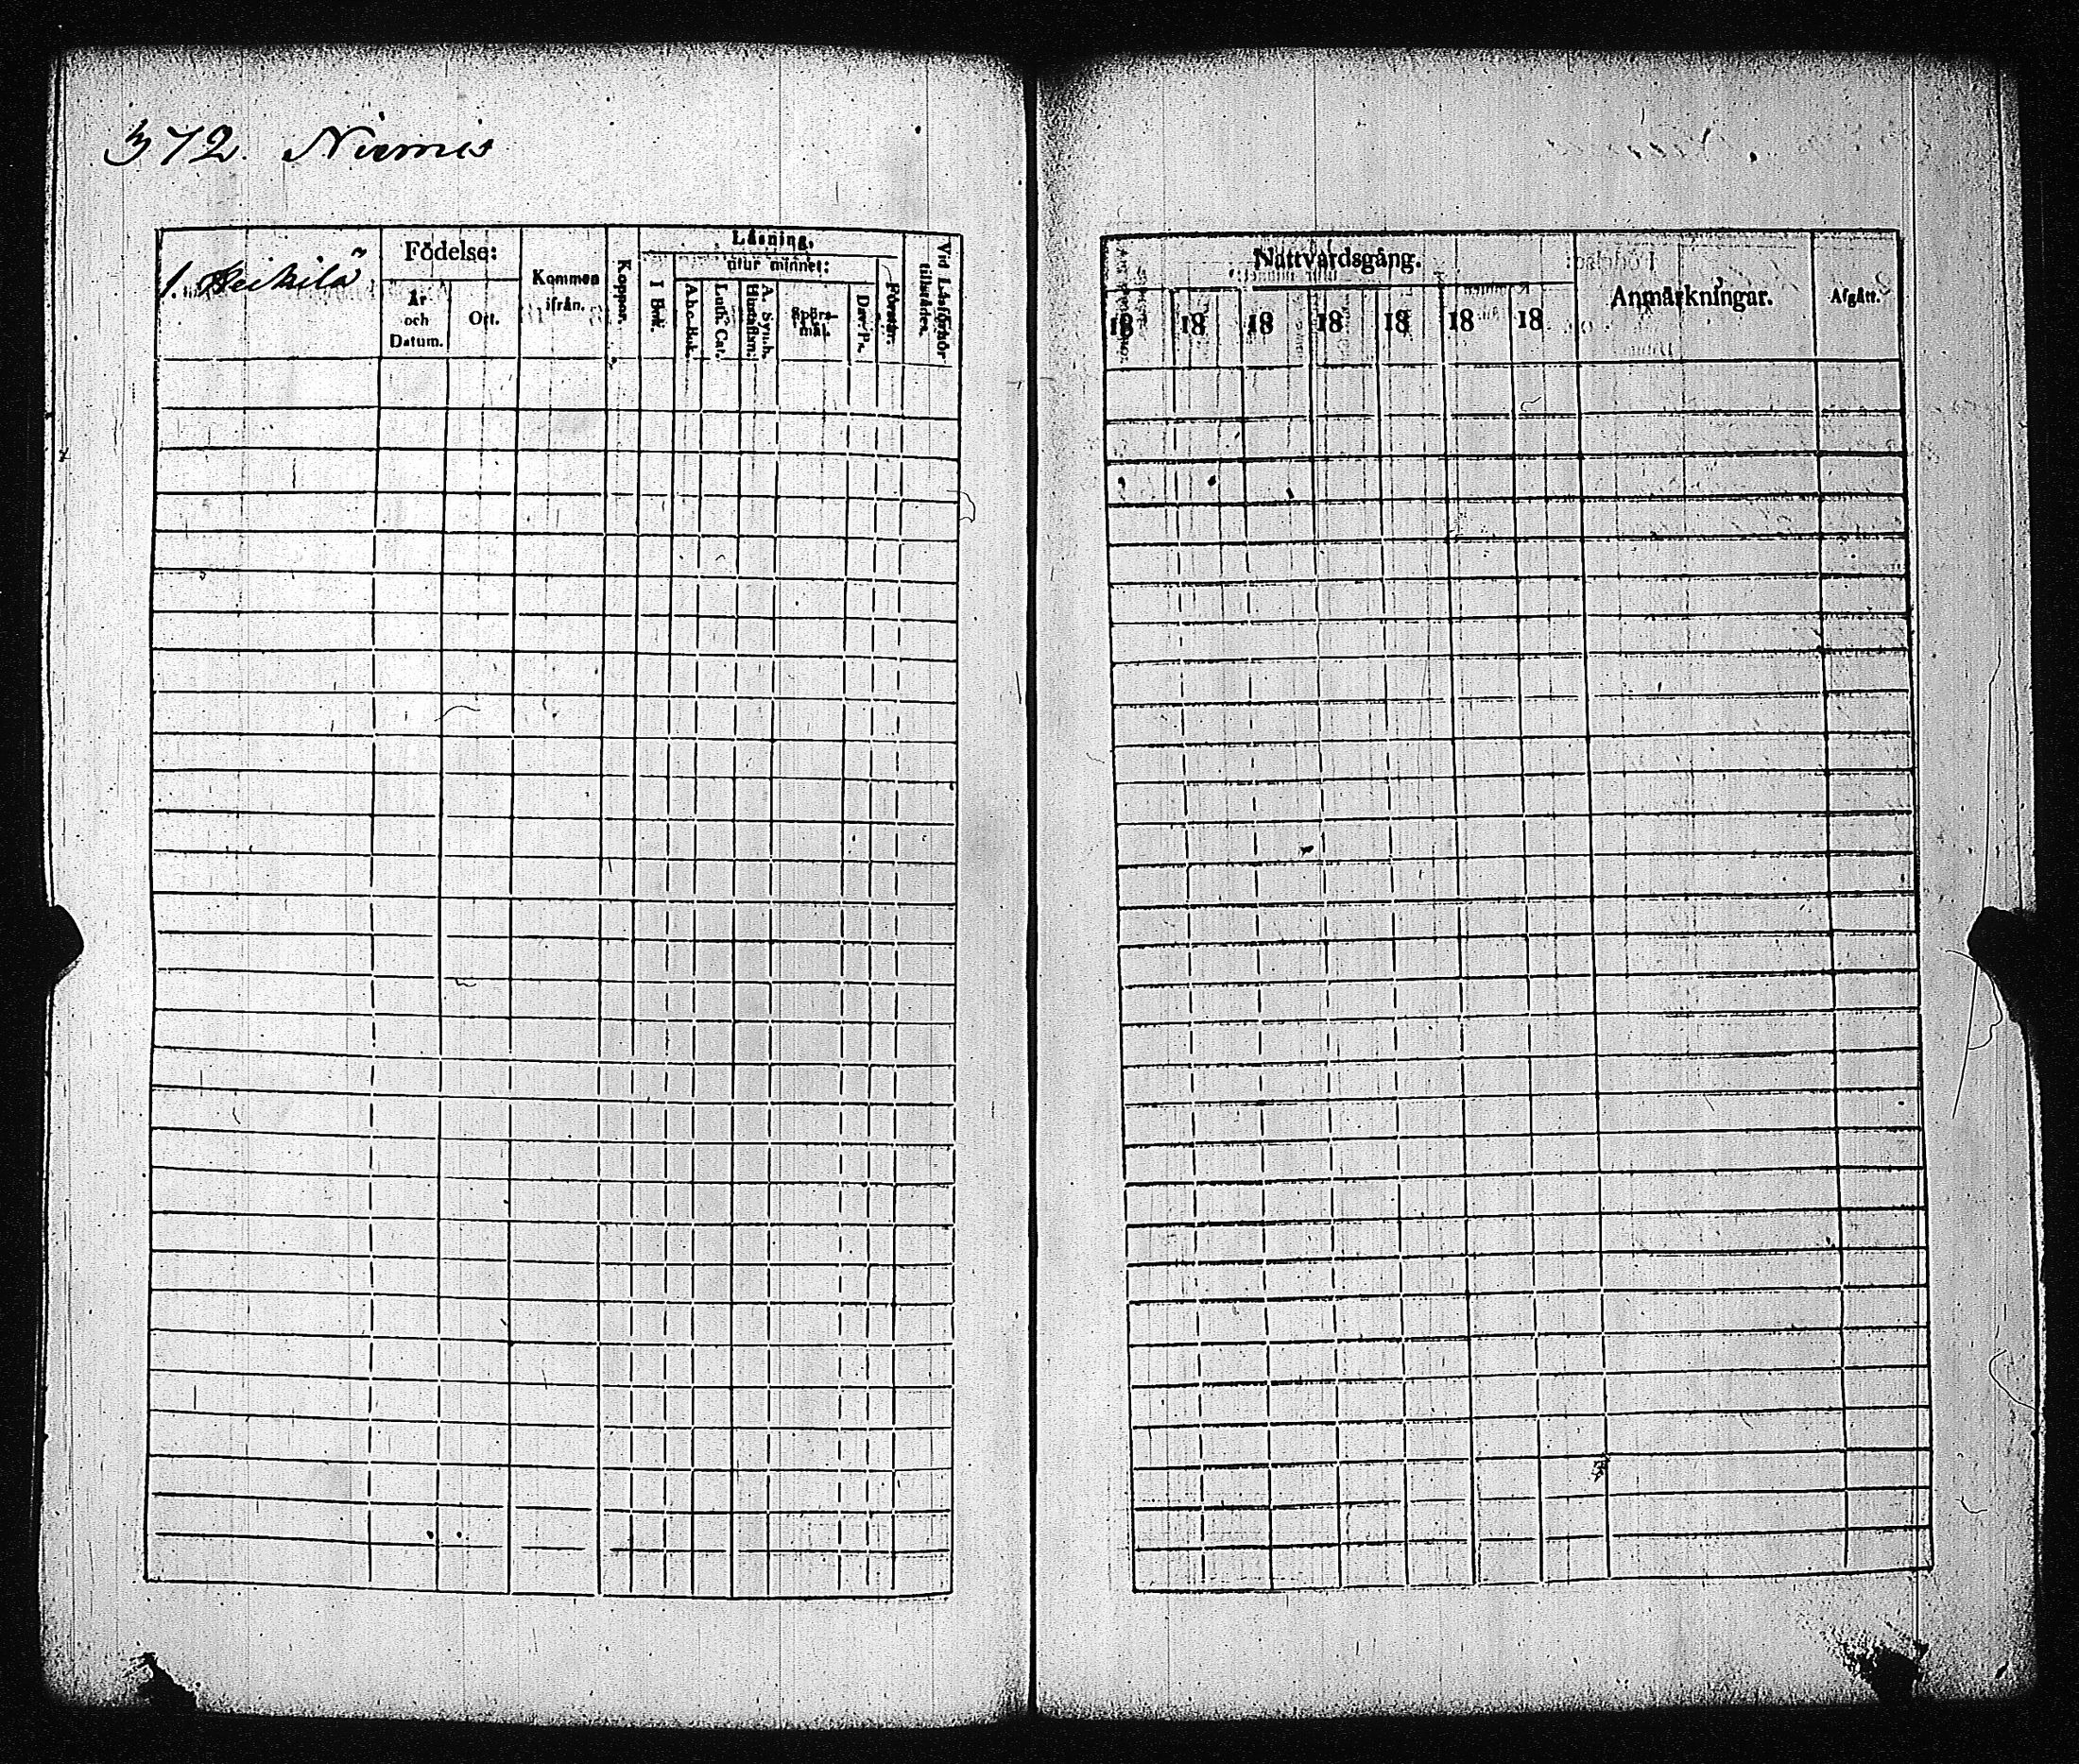 372. Niemis
1. Heikilä
Födelse:
År
och
Datum.
Ort.
Kommen
ifrån.
Koppor.
Läsning,
I Bok.
utur minnet:
A.b.c. Bok.
Luth. Cat.
A. Symb.
Hustaflan.
Spörs-
mål.
Dav. Ps.
Förestår.
Vid Läsförhör
tillstädes.
Nattvardsgång.
18 18 18 18 18 18 18
Anmärkningar.
Afgått.